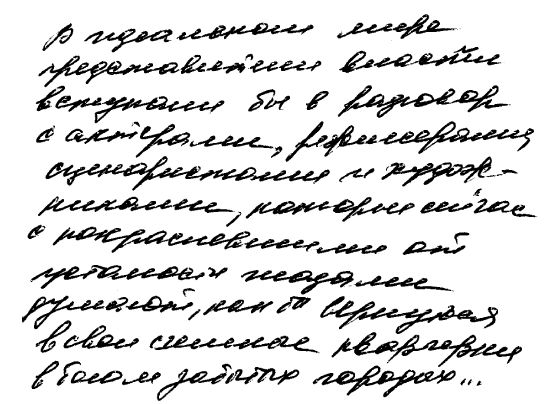 В идеальном мире
представители власти
вступали бы в разговор
с актерами, режиссерами,
сценаристами и худож-
никами, которые сейчас
с покрасневшими от
усталости глазами
думают, как бы вернуться
в свои съемные квартирки
в богом забытых городах...